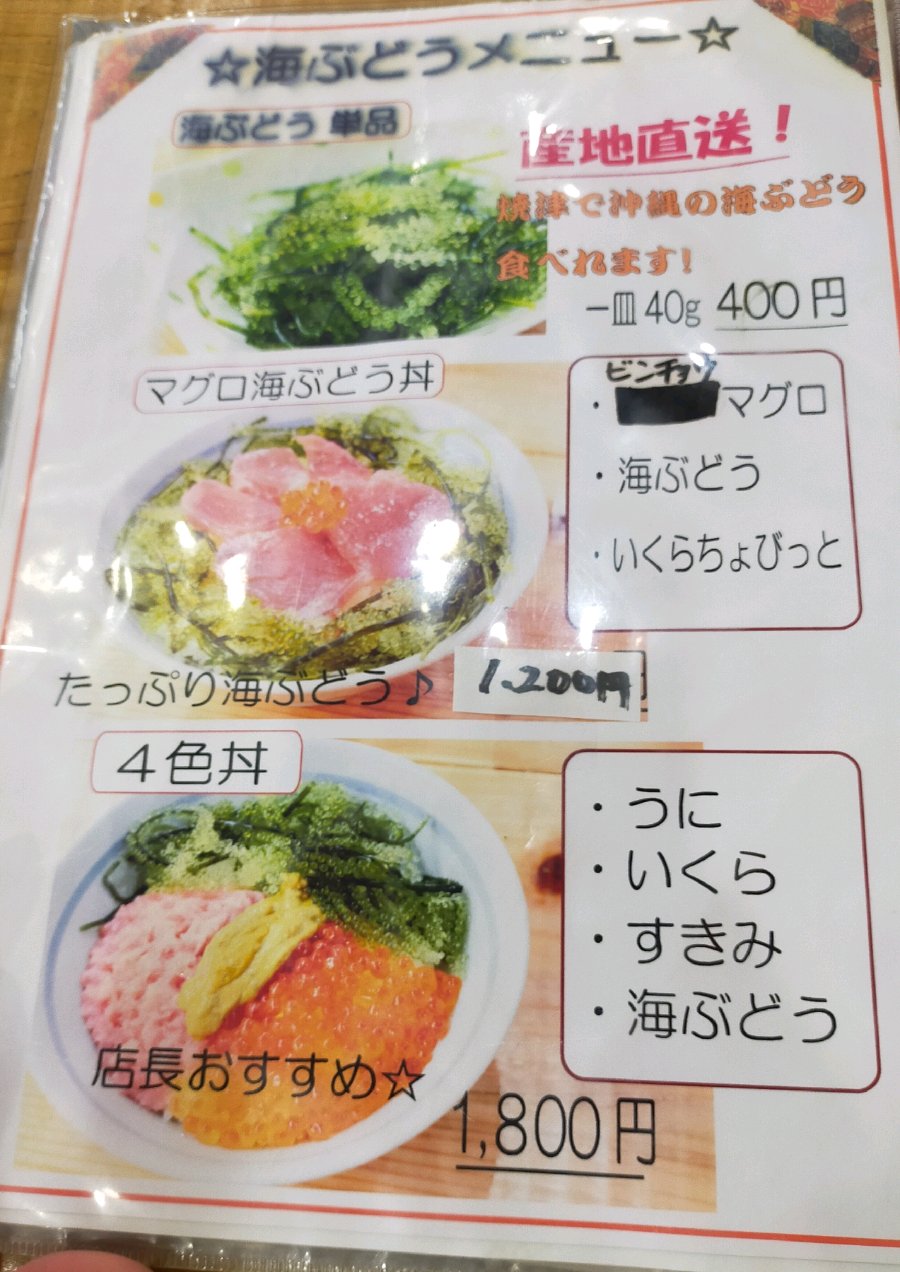 ☆海ぶどうメニュー☆
海ぶどう 単品
産地直送！
焼津で沖縄の海ぶどう
食べれます！
一皿 40g 400円
マグロ海ぶどう丼
ビンチョウ
・マグロ
・海ぶどう
・いくらちょびっと
たっぷり海ぶどう♪
1.200円
4色丼
・うに
・いくら
・すきみ
・海ぶどう
店長おすすめ☆
1,800円